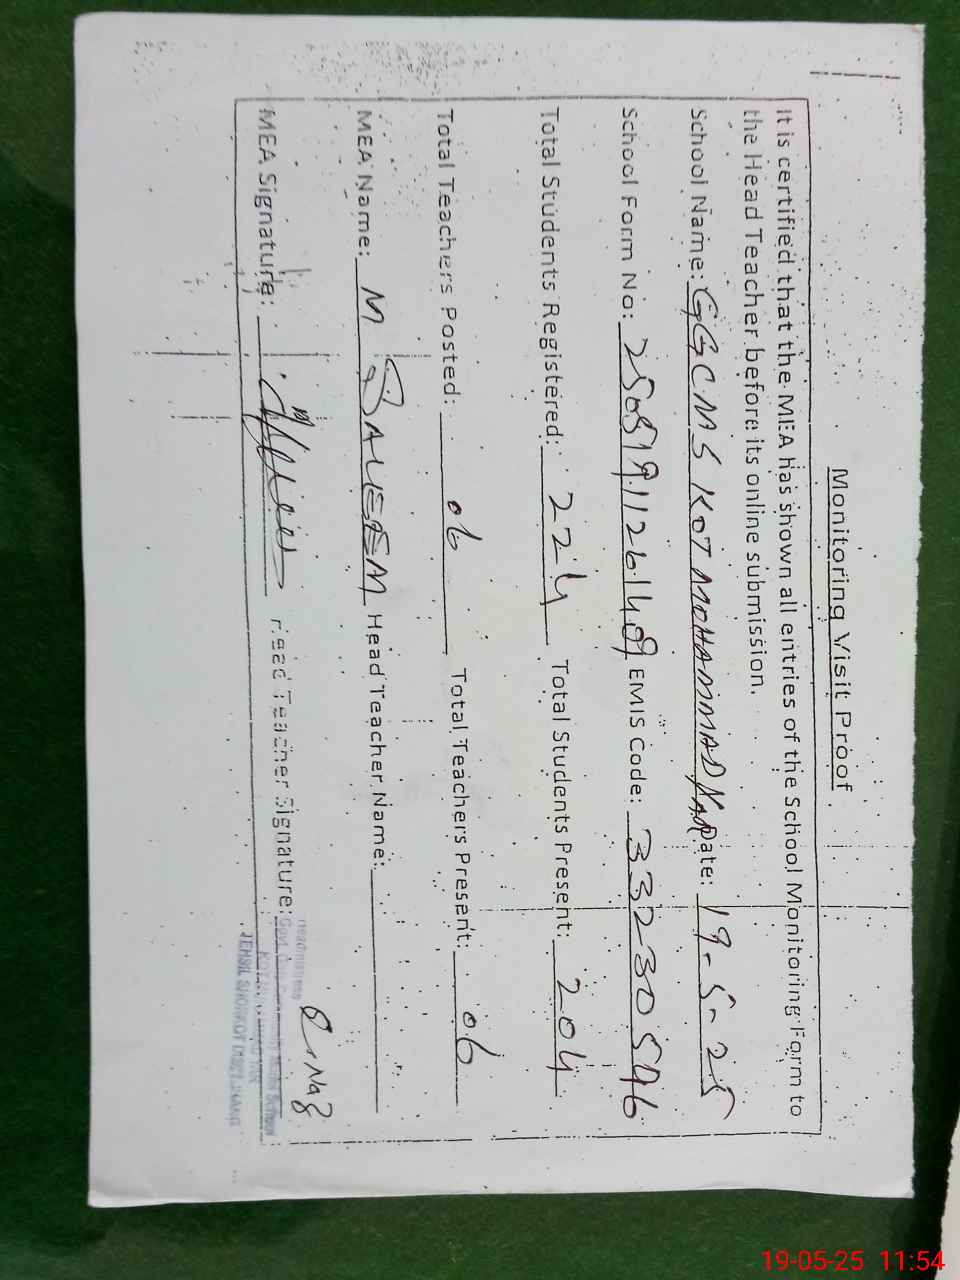 Monitoring Visit Proof
It is certified that the MEA has shown all entries of the School Monitoring Form to
the Head Teacher before its online submission.
School Name: GGCMS KOT MOHAMMAD YAR Date: 19-5-25
School Form No: 2505191126149 EMIS Code: 33230546
Total Students Registered: 224 Total Students Present: 204
Total Teachers Posted: 06 Total Teachers Present: 06
MEA Name: M SALEEM Head Teacher Name:
MEA Signature: Head Teacher Signature:
Headmistress
Govt. Community School
TEHSIL SHORKOT DISTT. JHANG
19-05-25 11:54